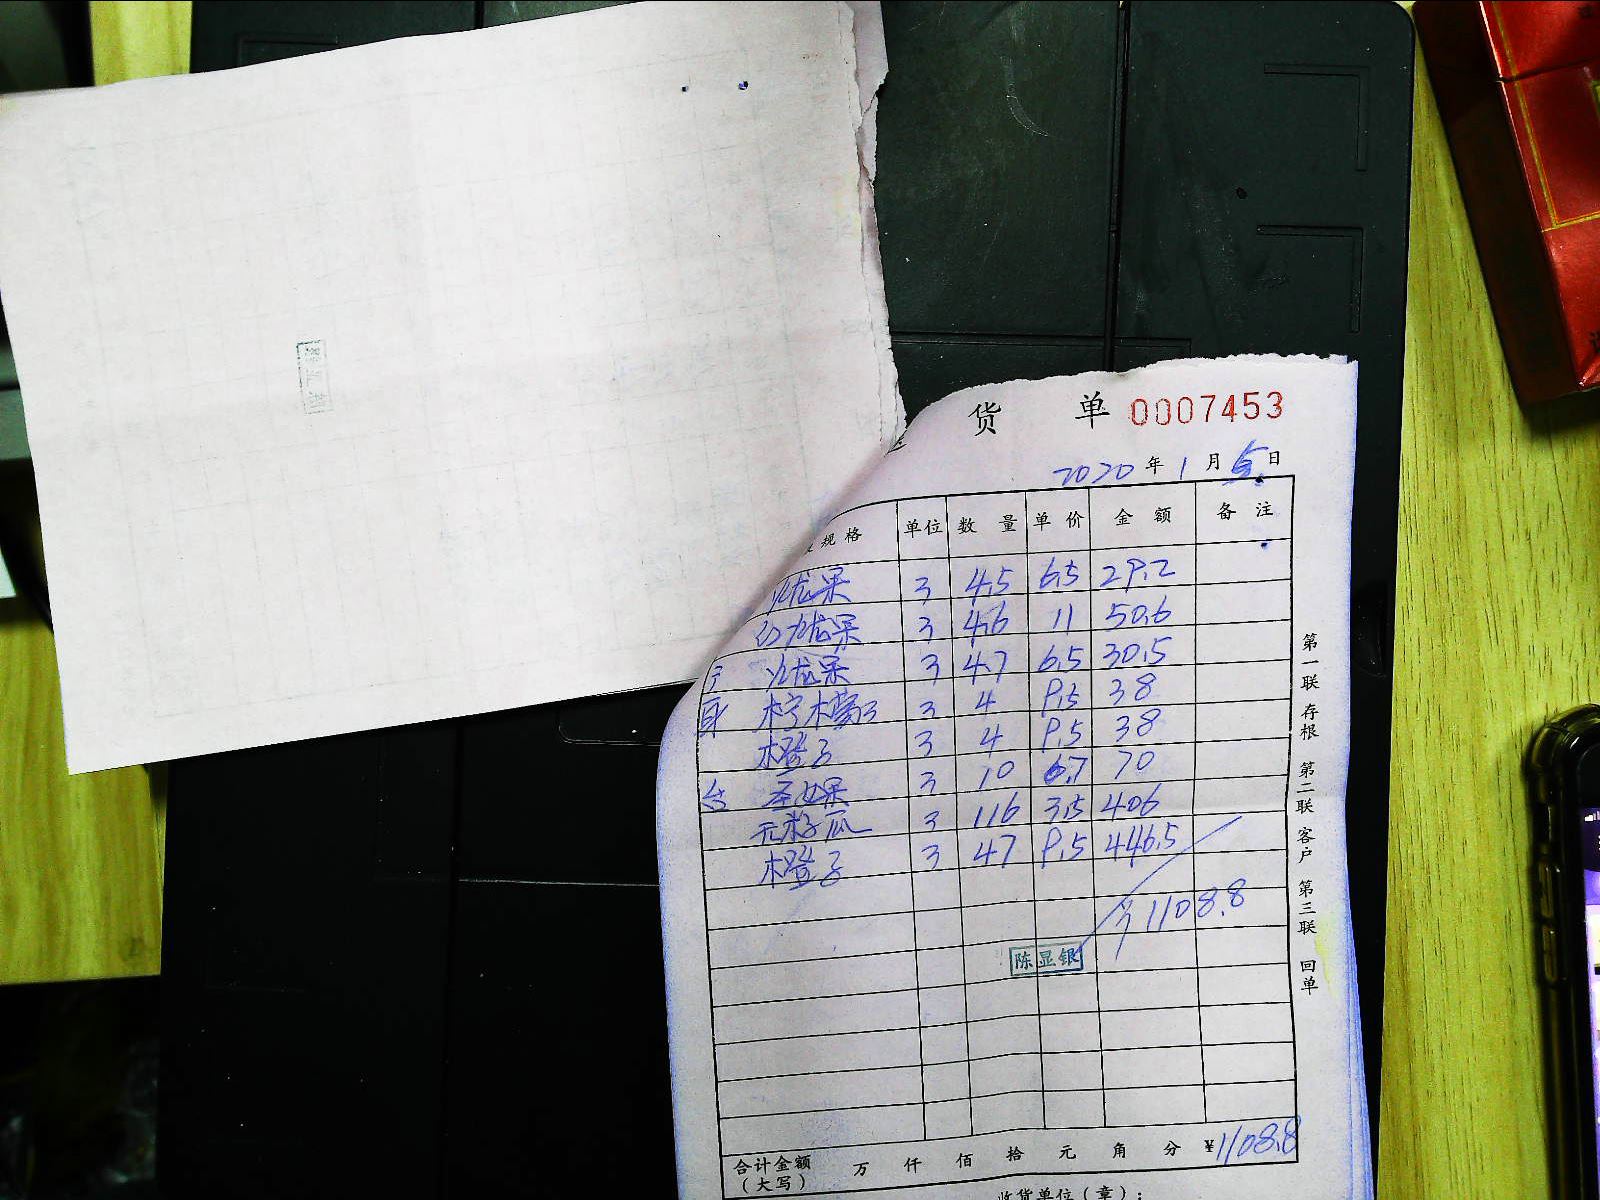 货 单 0007453
2020 年 1 月 日
规格 单位 数量 单价 金额 备注
火龙果 3 4.5 6.5 29.2
红火龙果 3 4.6 11 50.6
火龙果 3 4.7 6.5 30.5
柠檬 3 4 9.5 38
橙子 3 4 9.5 38
台 圣女果 3 10 6.7 70
无籽瓜 3 116 3.5 406
橙子 3 47 9.5 446.5
1108.8
陈显银
合计金额(大写) 万 仟 佰 拾 元 角 分 ¥1108.8
收货单位(章):
第一联 存根 第二联 客户 第三联 回单